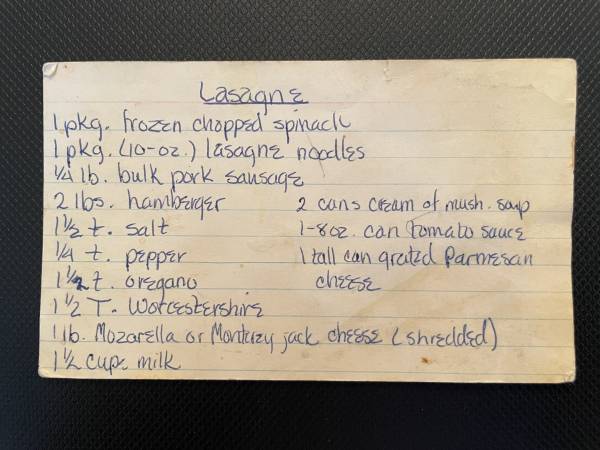 Lasagne
1 pkg. frozen chopped spinach
1 pkg. (10-oz.) lasagne noodles
1/4 lb. bulk pork sausage
2 lbs. hamberger
2 cans cream of mush. soup
1 1/2 t. salt
1-8oz. can tomato sauce
1/4 t. pepper
1 tall can grated Parmesan
cheese
1 1/2 t. oregano
1 1/2 T. Worcestershire
1 lb. Mozarella or Monterey jack cheese (shredded)
1 1/2 cups milk